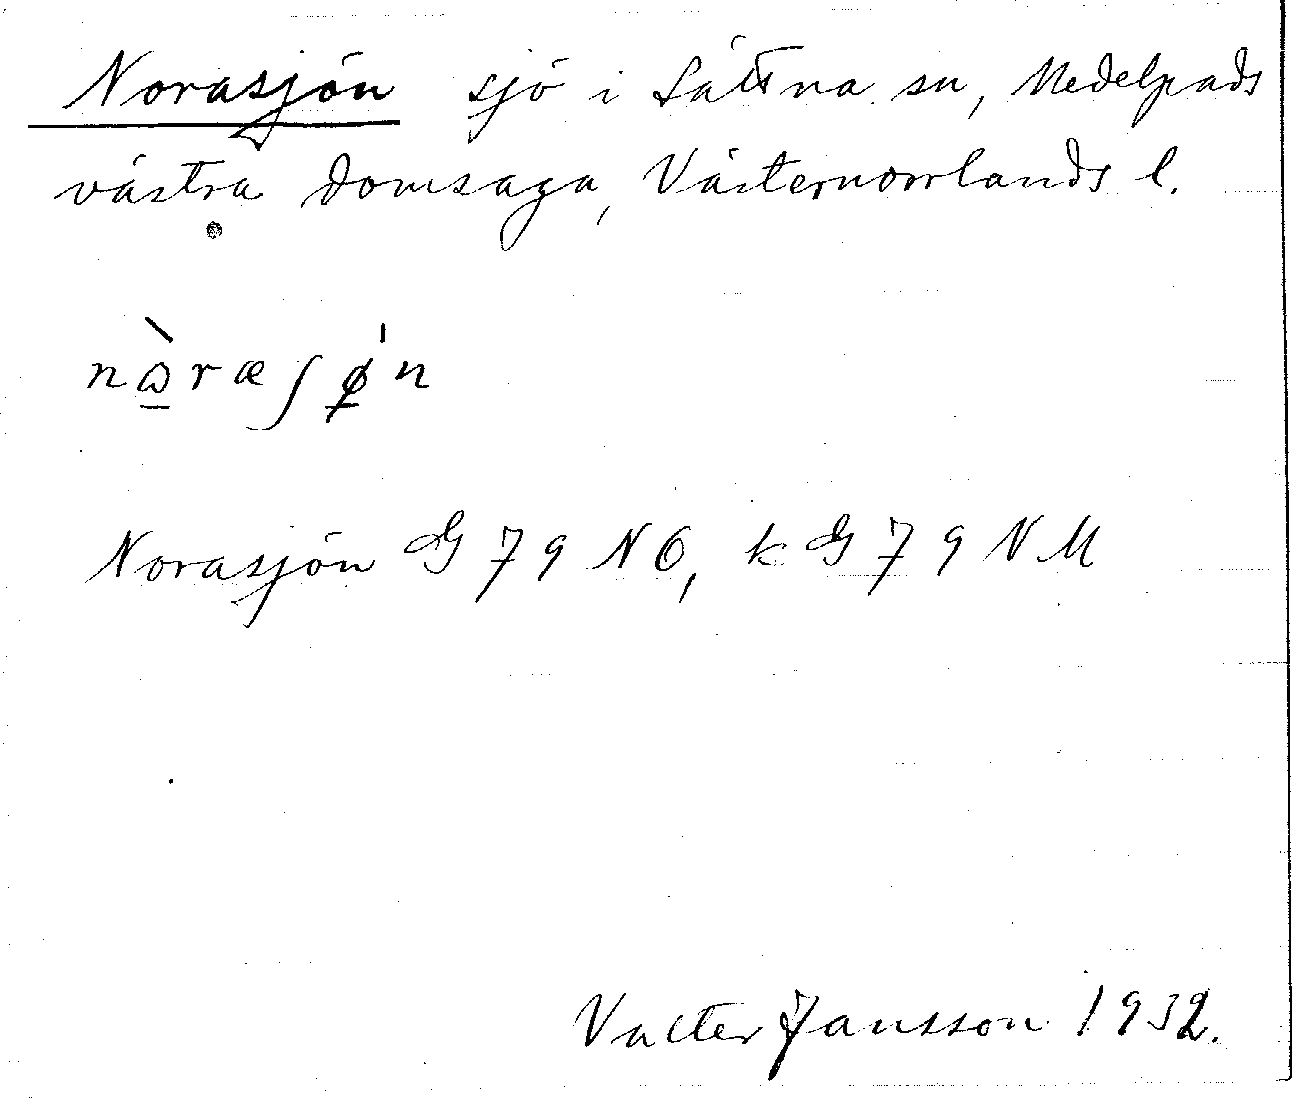 Norasjön sjö i Sättna sn, Medelpads
västra domsaga, Västernorrlands l.
nɷ̱̀ræʃø̱ˈn
Norasjön G 79 NO, k G 79 NM
Valter Jansson 1932.